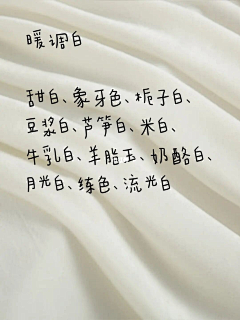 暖调白
甜白、象牙色、栀子白、
豆浆白、芦笋白、米白、
牛乳白、羊脂玉、奶酪白、
月光白、练色、流光白